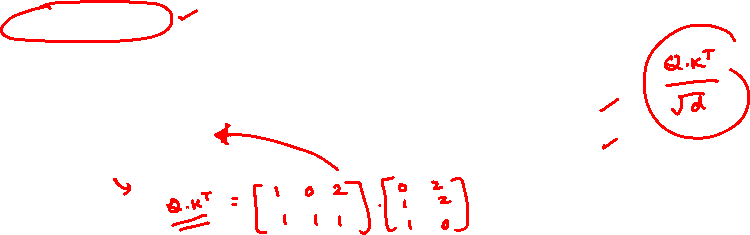 Q.K^T
√d
Q.K^T = [1 0 2
1 1 1] . [0 2
1 2
1 0]